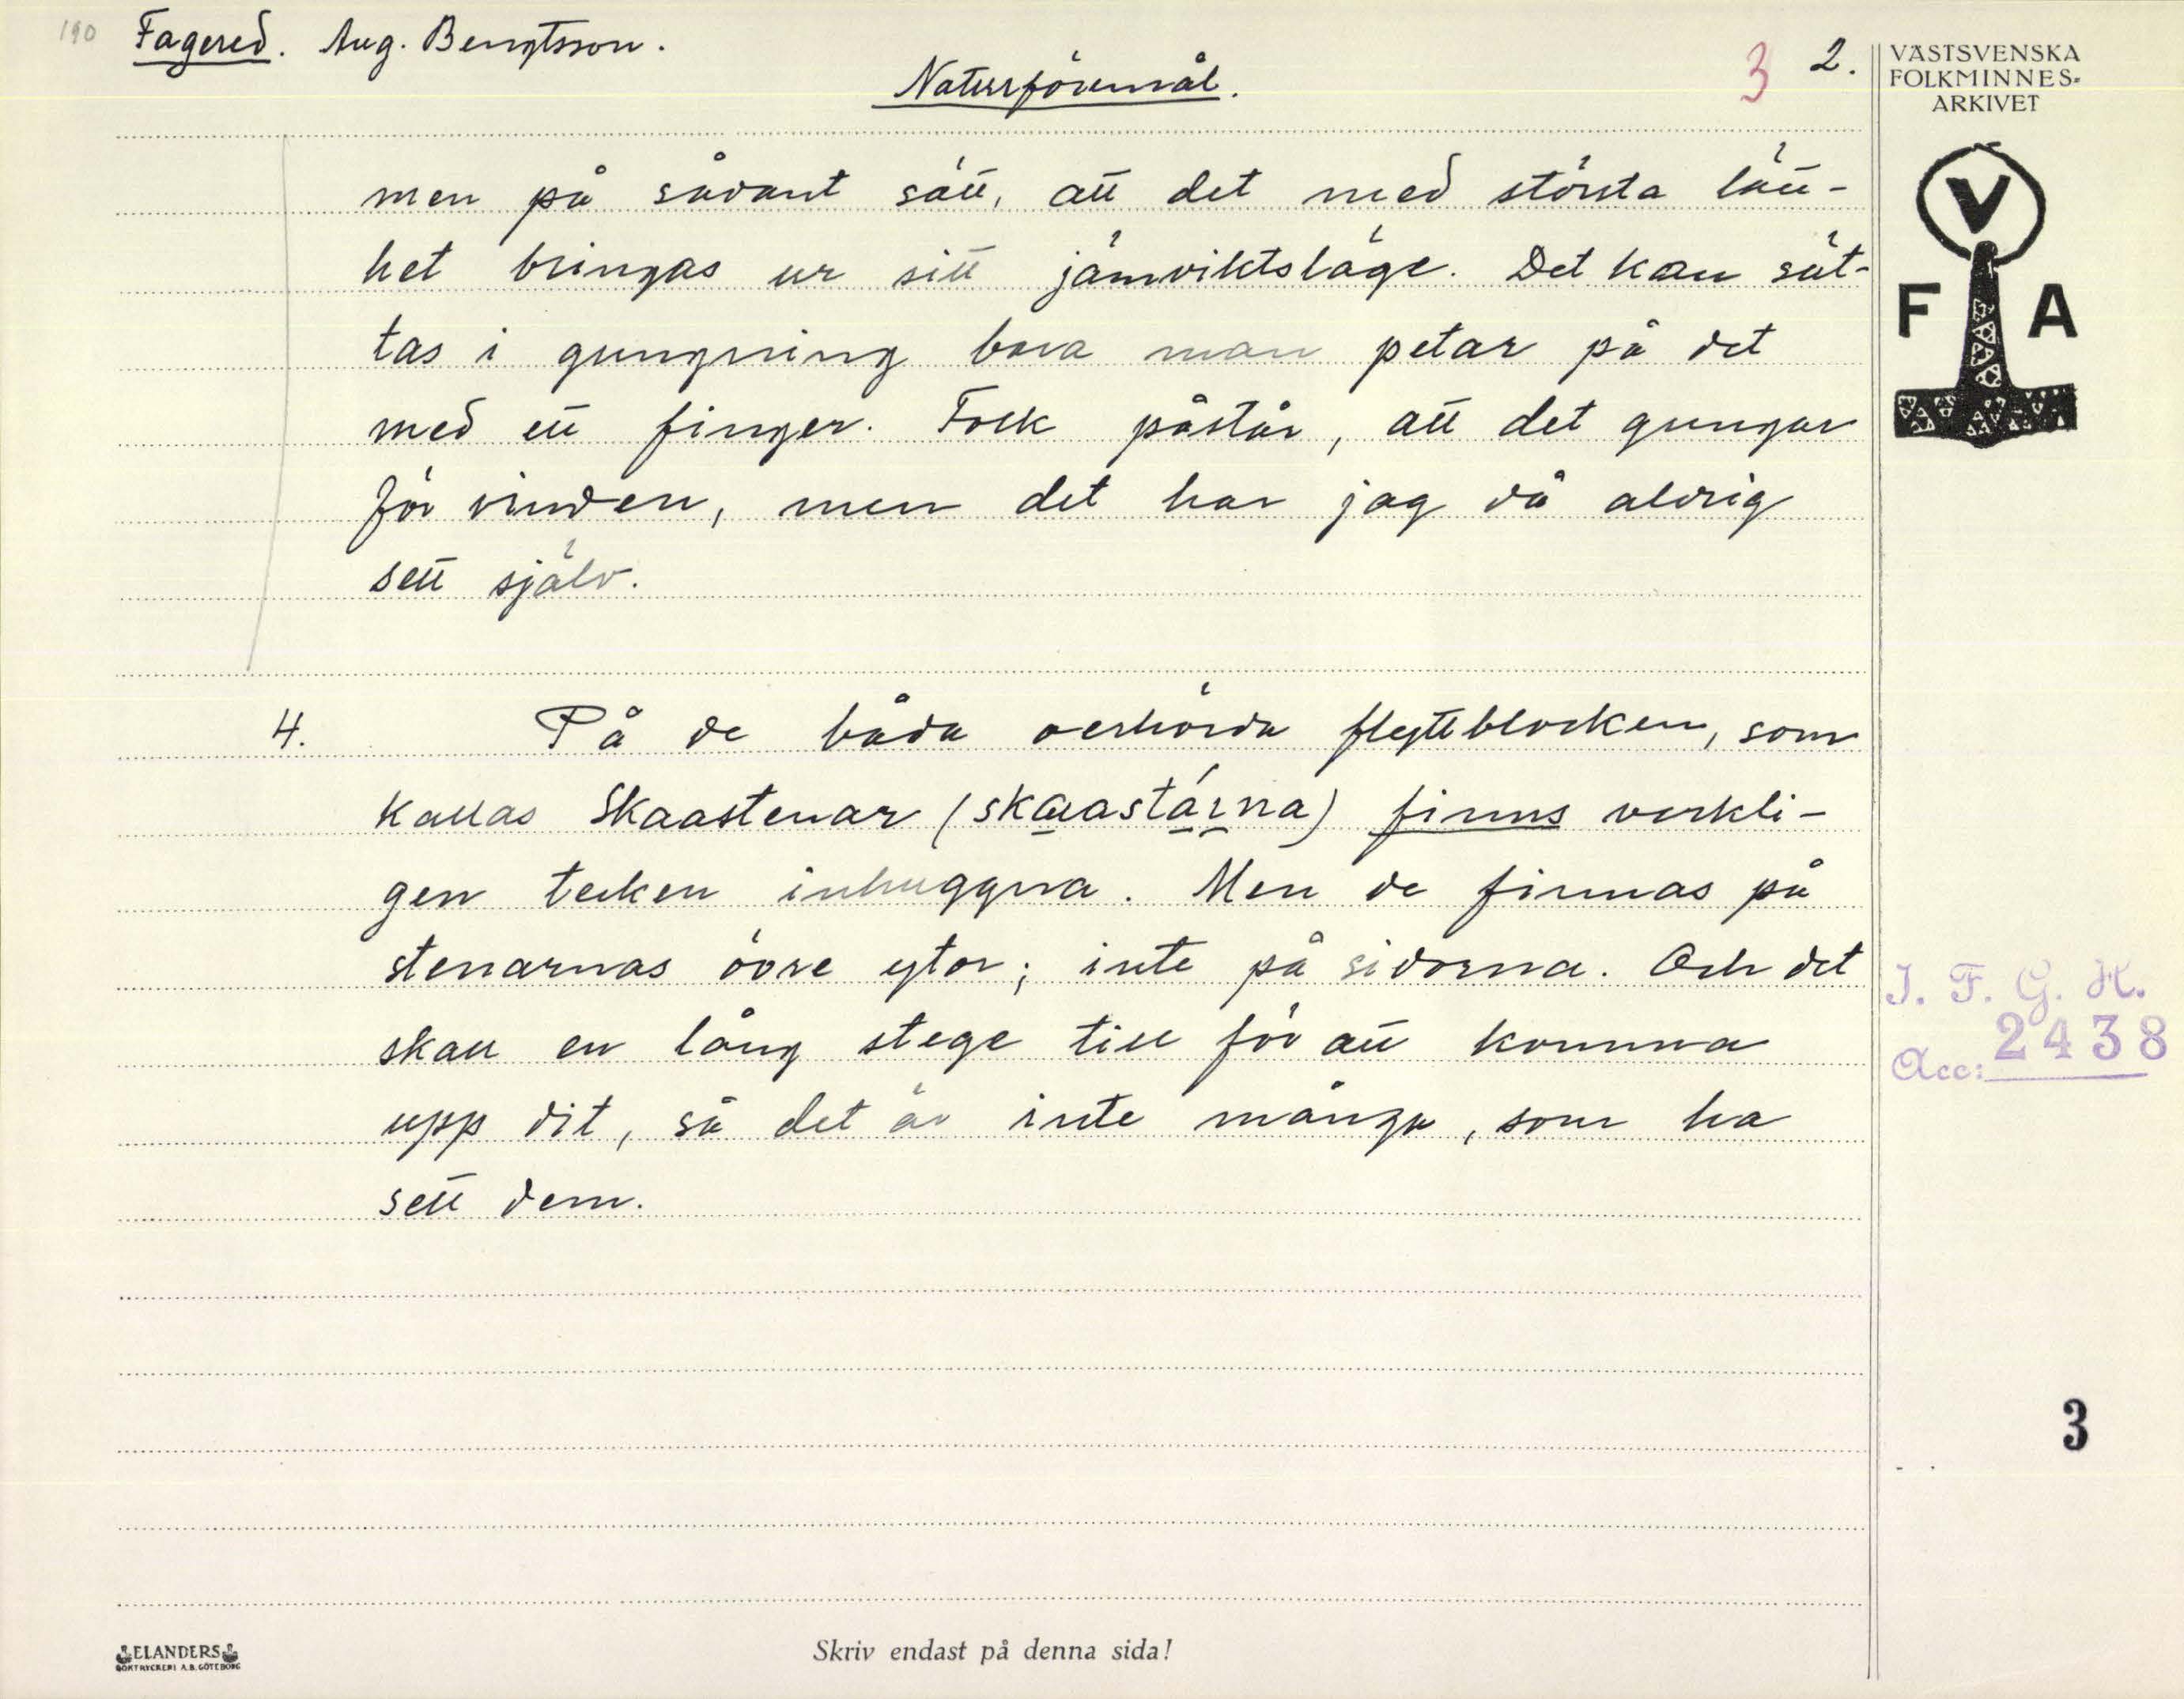 190 Fagered. Aug. Bengtsson.
Naturföremål.
3 2.
VÄSTSVENSKA
FOLKMINNES-
ARKIVET
V
F A
men på sådant sätt, att det med största lätt-
het bringas ur sitt jämviktsläge. Det kan sät-
tas i gungning bara man petar på det
med ett finger. Folk påstår, att det gungar
för vinden, men det har jag då aldrig
sett själv.
4. På de båda oerhörda flyttblocken, som
kallas Skaastenar (skaastäina) finns verkli-
gen tecken inhuggna. Men de finnas på
stenarnas övre ytor; inte på sidorna. Och det
skall en lång stege till för att komma
upp dit, så det är inte många, som ha
sett dem.
I. F. G. H.
Acc: 2438
3
ELANDERS
BOKTRYCKERI A.B. GÖTEBORG
Skriv endast på denna sida!